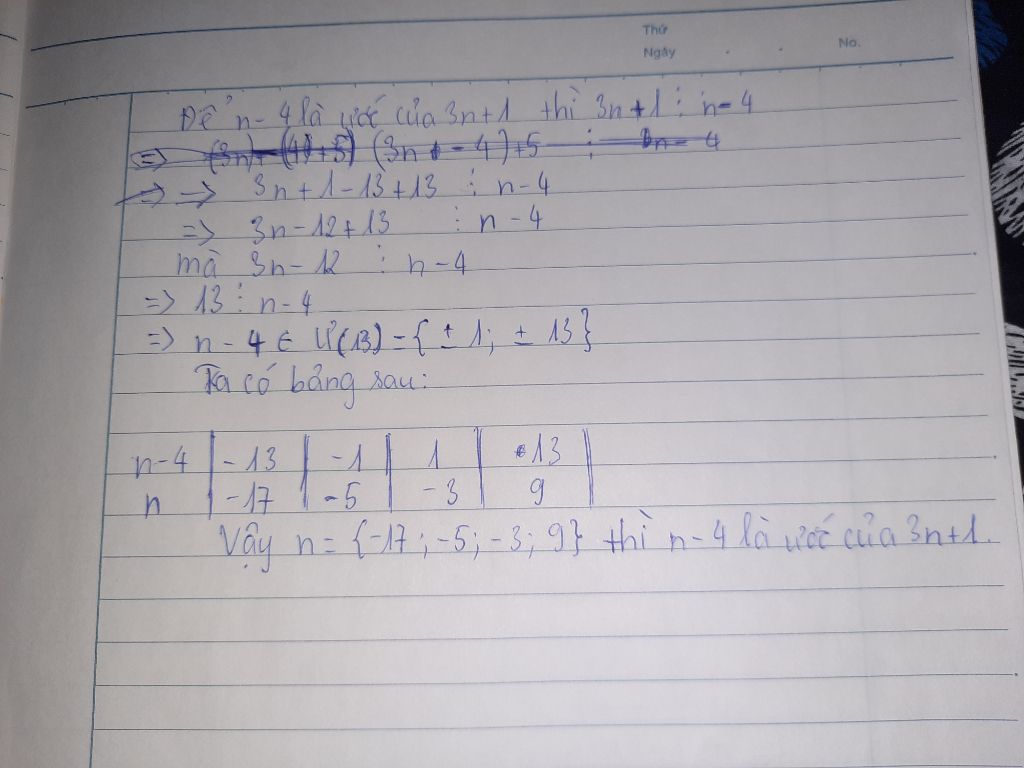 Thứ
Ngày . . No.
Để n-4 là ước của 3n+1 thì 3n+1 ⋮ n-4
=> (3n-4)+5 ⋮ n-4
=> → 3n+1-13+13 ⋮ n-4
=> 3n-12+13 ⋮ n-4
mà 3n-12 ⋮ n-4
=> 13 ⋮ n-4
=> n-4 ∈ Ư(13)={±1; ±13}
Ta có bảng sau:
n-4 | -13 | -1 | 1 | 13
n | -17 | -5 | -3 | 9
Vậy n = {-17; -5; -3; 9} thì n-4 là ước của 3n+1.